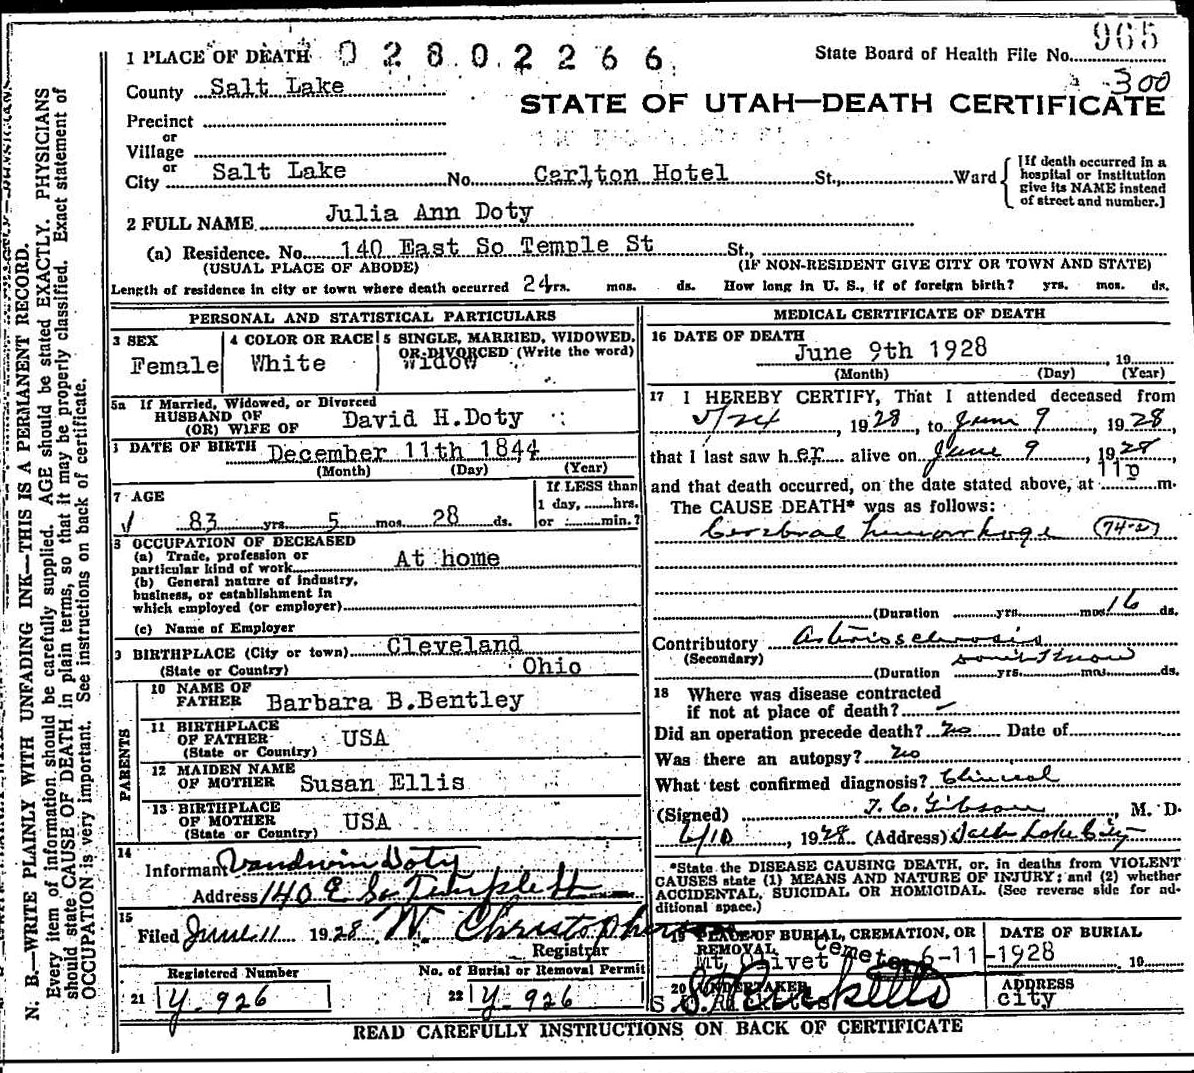 1 PLACE OF DEATH 02802266
State Board of Health File No. 965
300
County Salt Lake
STATE OF UTAH—DEATH CERTIFICATE
Precinct
or
Village
or
City Salt Lake No. Carlton Hotel St., Ward
[If death occurred in a
hospital or institution
give its NAME instead
of street and number.]
2 FULL NAME Julia Ann Doty
(a) Residence. No. 140 East So Temple St St.,
(USUAL PLACE OF ABODE) (IF NON-RESIDENT GIVE CITY OR TOWN AND STATE)
Length of residence in city or town where death occurred 24 yrs. mos. ds. How long in U. S., if of foreign birth? yrs. mos. ds.
PERSONAL AND STATISTICAL PARTICULARS
3 SEX
Female
4 COLOR OR RACE
White
5 SINGLE, MARRIED, WIDOWED,
OR DIVORCED (Write the word)
Widow
5a If Married, Widowed, or Divorced
HUSBAND OF
(OR) WIFE OF David H.Doty
DATE OF BIRTH December 11th 1844
(Month) (Day) (Year)
7 AGE
83 yrs. 5 mos. 28 ds.
If LESS than
1 day, hrs.
or min.?
8 OCCUPATION OF DECEASED
(a) Trade, profession or
particular kind of work At home
(b) General nature of industry,
business, or establishment in
which employed (or employer)
(c) Name of Employer
9 BIRTHPLACE (City or town) Cleveland
(State or Country) Ohio
PARENTS
10 NAME OF
FATHER Barbara B.Bentley
11 BIRTHPLACE
OF FATHER USA
(State or Country)
12 MAIDEN NAME
OF MOTHER Susan Ellis
13 BIRTHPLACE
OF MOTHER USA
(State or Country)
14
Informant Doty
Address 140 E So Temple St
15
Filed June 11 1928 W. Christopherson
Registrar
Registered Number
21 Y-926
No. of Burial or Removal Permit
22 Y-926
MEDICAL CERTIFICATE OF DEATH
16 DATE OF DEATH
June 9th 1928, 19
(Month) (Day) (Year)
17 I HEREBY CERTIFY, That I attended deceased from
5/24, 1928, to June 9 1928
that I last saw her alive on June 9, 1928,
and that death occurred, on the date stated above, at 11p m.
The CAUSE DEATH* was as follows:
Cerebral hemorrhage (74-2)
(Duration yrs. mos. 16 ds.
Contributory Arteriosclerosis
(Secondary) don't know
(Duration yrs. mos. ds.
18 Where was disease contracted
if not at place of death? —
Did an operation precede death? No Date of
Was there an autopsy? No
What test confirmed diagnosis? Clinical
(Signed) T. C. Gibson, M. D.
6/10, 1928 (Address) Salt Lake City
*State the DISEASE CAUSING DEATH, or, in deaths from VIOLENT
CAUSES state (1) MEANS AND NATURE OF INJURY; and (2) whether
ACCIDENTAL, SUICIDAL OR HOMICIDAL. (See reverse side for ad-
ditional space.)
19 PLACE OF BURIAL, CREMATION, OR
REMOVAL
Mt. Olivet Cemetery
DATE OF BURIAL
6-11-1928 19
20 UNDERTAKER
S.D. Ricketts
ADDRESS
City
READ CAREFULLY INSTRUCTIONS ON BACK OF CERTIFICATE
N. B.—WRITE PLAINLY WITH UNFADING INK—THIS IS A PERMANENT RECORD.
Every item of information should be carefully supplied. AGE should be stated EXACTLY. PHYSICIANS
should state CAUSE OF DEATH in plain terms, so that it may be properly classified. Exact statement of
OCCUPATION is very important. See instructions on back of certificate.